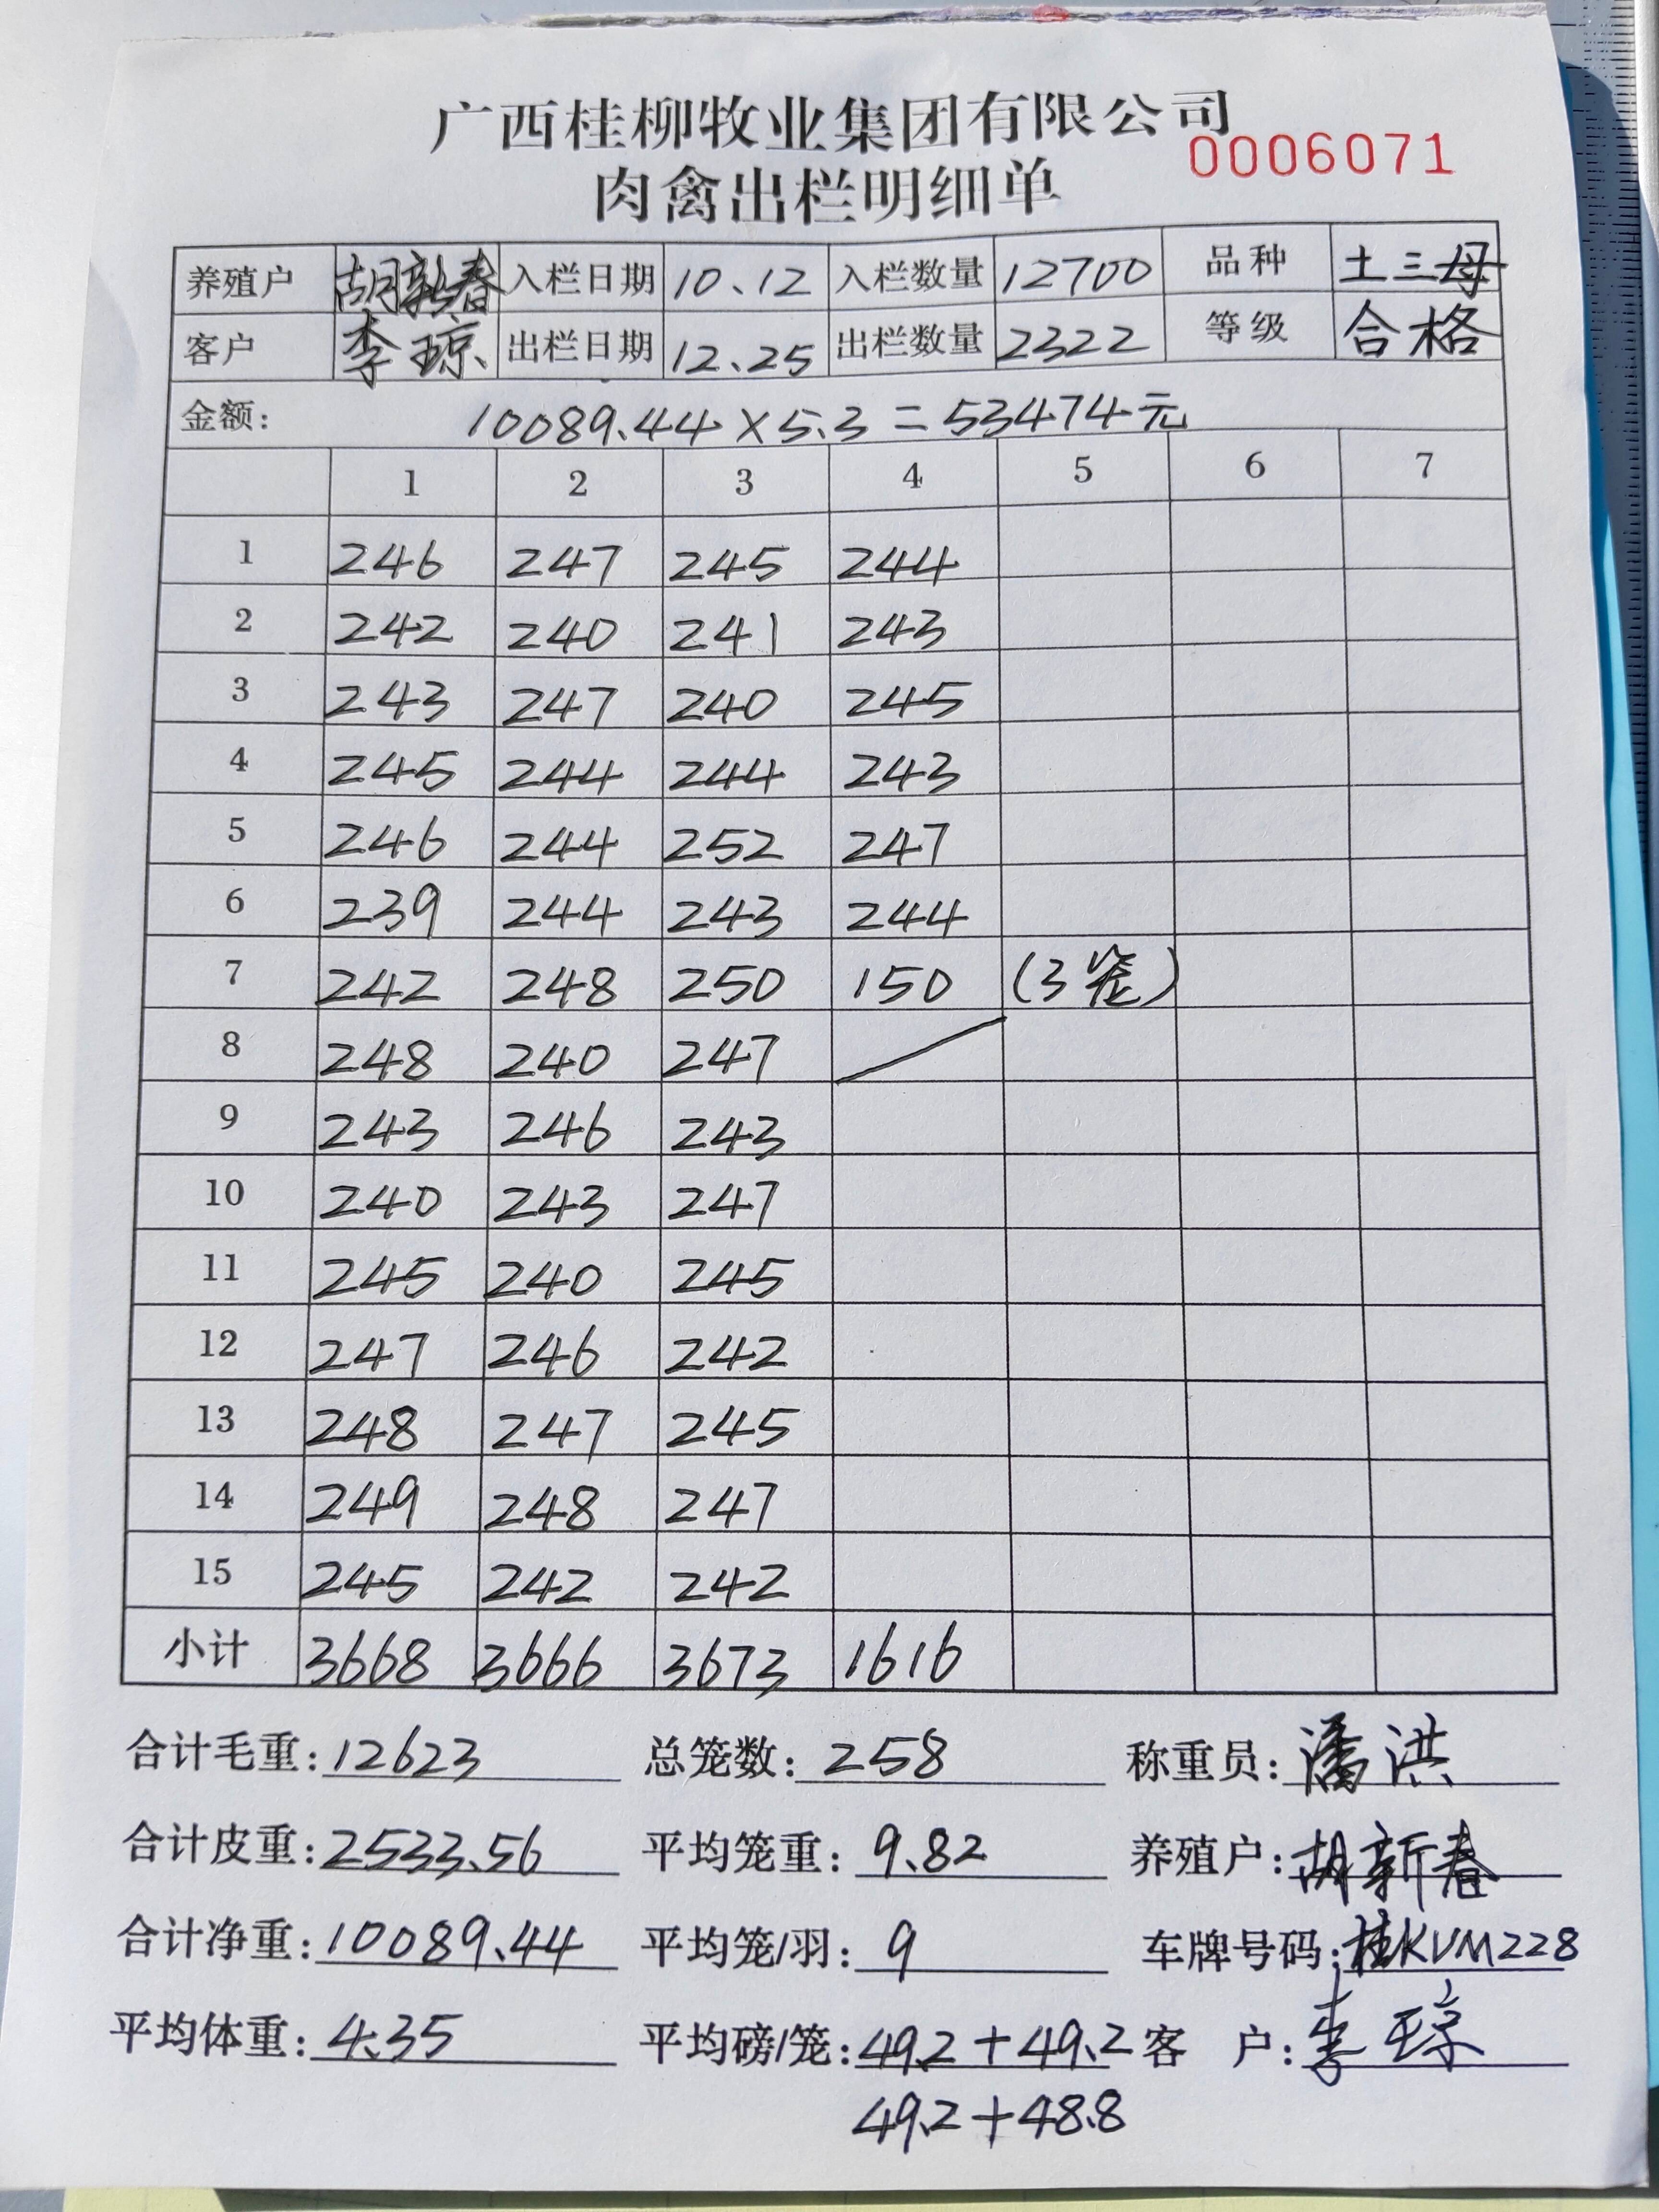 广西桂柳牧业集团有限公司
0006071
肉禽出栏明细单
养殖户 胡新春 入栏日期 10.12 入栏数量 12700 品种 土三母
客户 李琼 出栏日期 12.25 出栏数量 2322 等级 合格
金额: 10089.44×5.3=53474元
1 2 3 4 5 6 7
1 246 247 245 244
2 242 240 241 243
3 243 247 240 245
4 245 244 244 243
5 246 244 252 247
6 239 244 243 244
7 242 248 250 150 (3笼)
8 248 240 247
9 243 246 243
10 240 243 247
11 245 240 245
12 247 246 242
13 248 247 245
14 249 248 247
15 245 242 242
小计 3668 3666 3673 1616
合计毛重: 12623 总笼数: 258 称重员: 潘洪
合计皮重: 2533.56 平均笼重: 9.82 养殖户: 胡新春
合计净重: 10089.44 平均笼/羽: 9 车牌号码: 桂KVM228
平均体重: 4.35 平均磅/笼: 49.2+49.2 客 户: 李琼
49.2+48.8